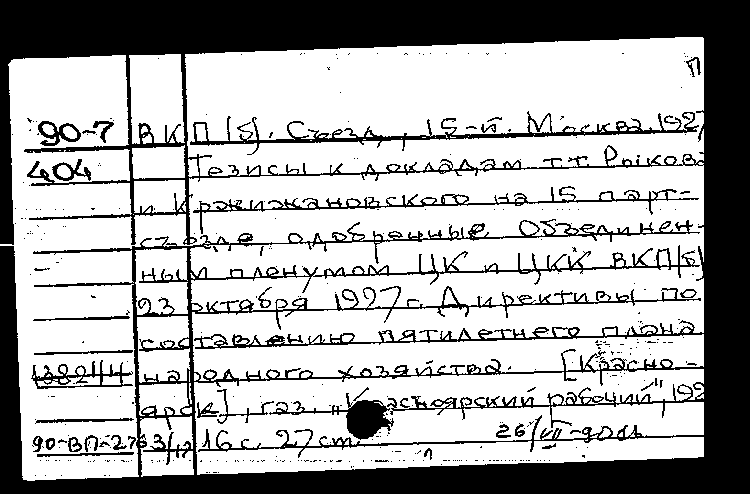 П
90-7 ВКП(б). Съезд, 15-й. Москва. 1927
404 Тезисы к докладам т.т. Рыкова
и Кржижановского на 15 парт-
съезде, одобренные Объединен-
ным пленумом ЦК и ЦКК ВКП(б)
23 октября 1927 г. Директивы по
составлению пятилетнего плана
народного хозяйства. [Красно-
ярск], газ. „Красноярский рабочий", 192
16 с. 27 см.
26/VII-90